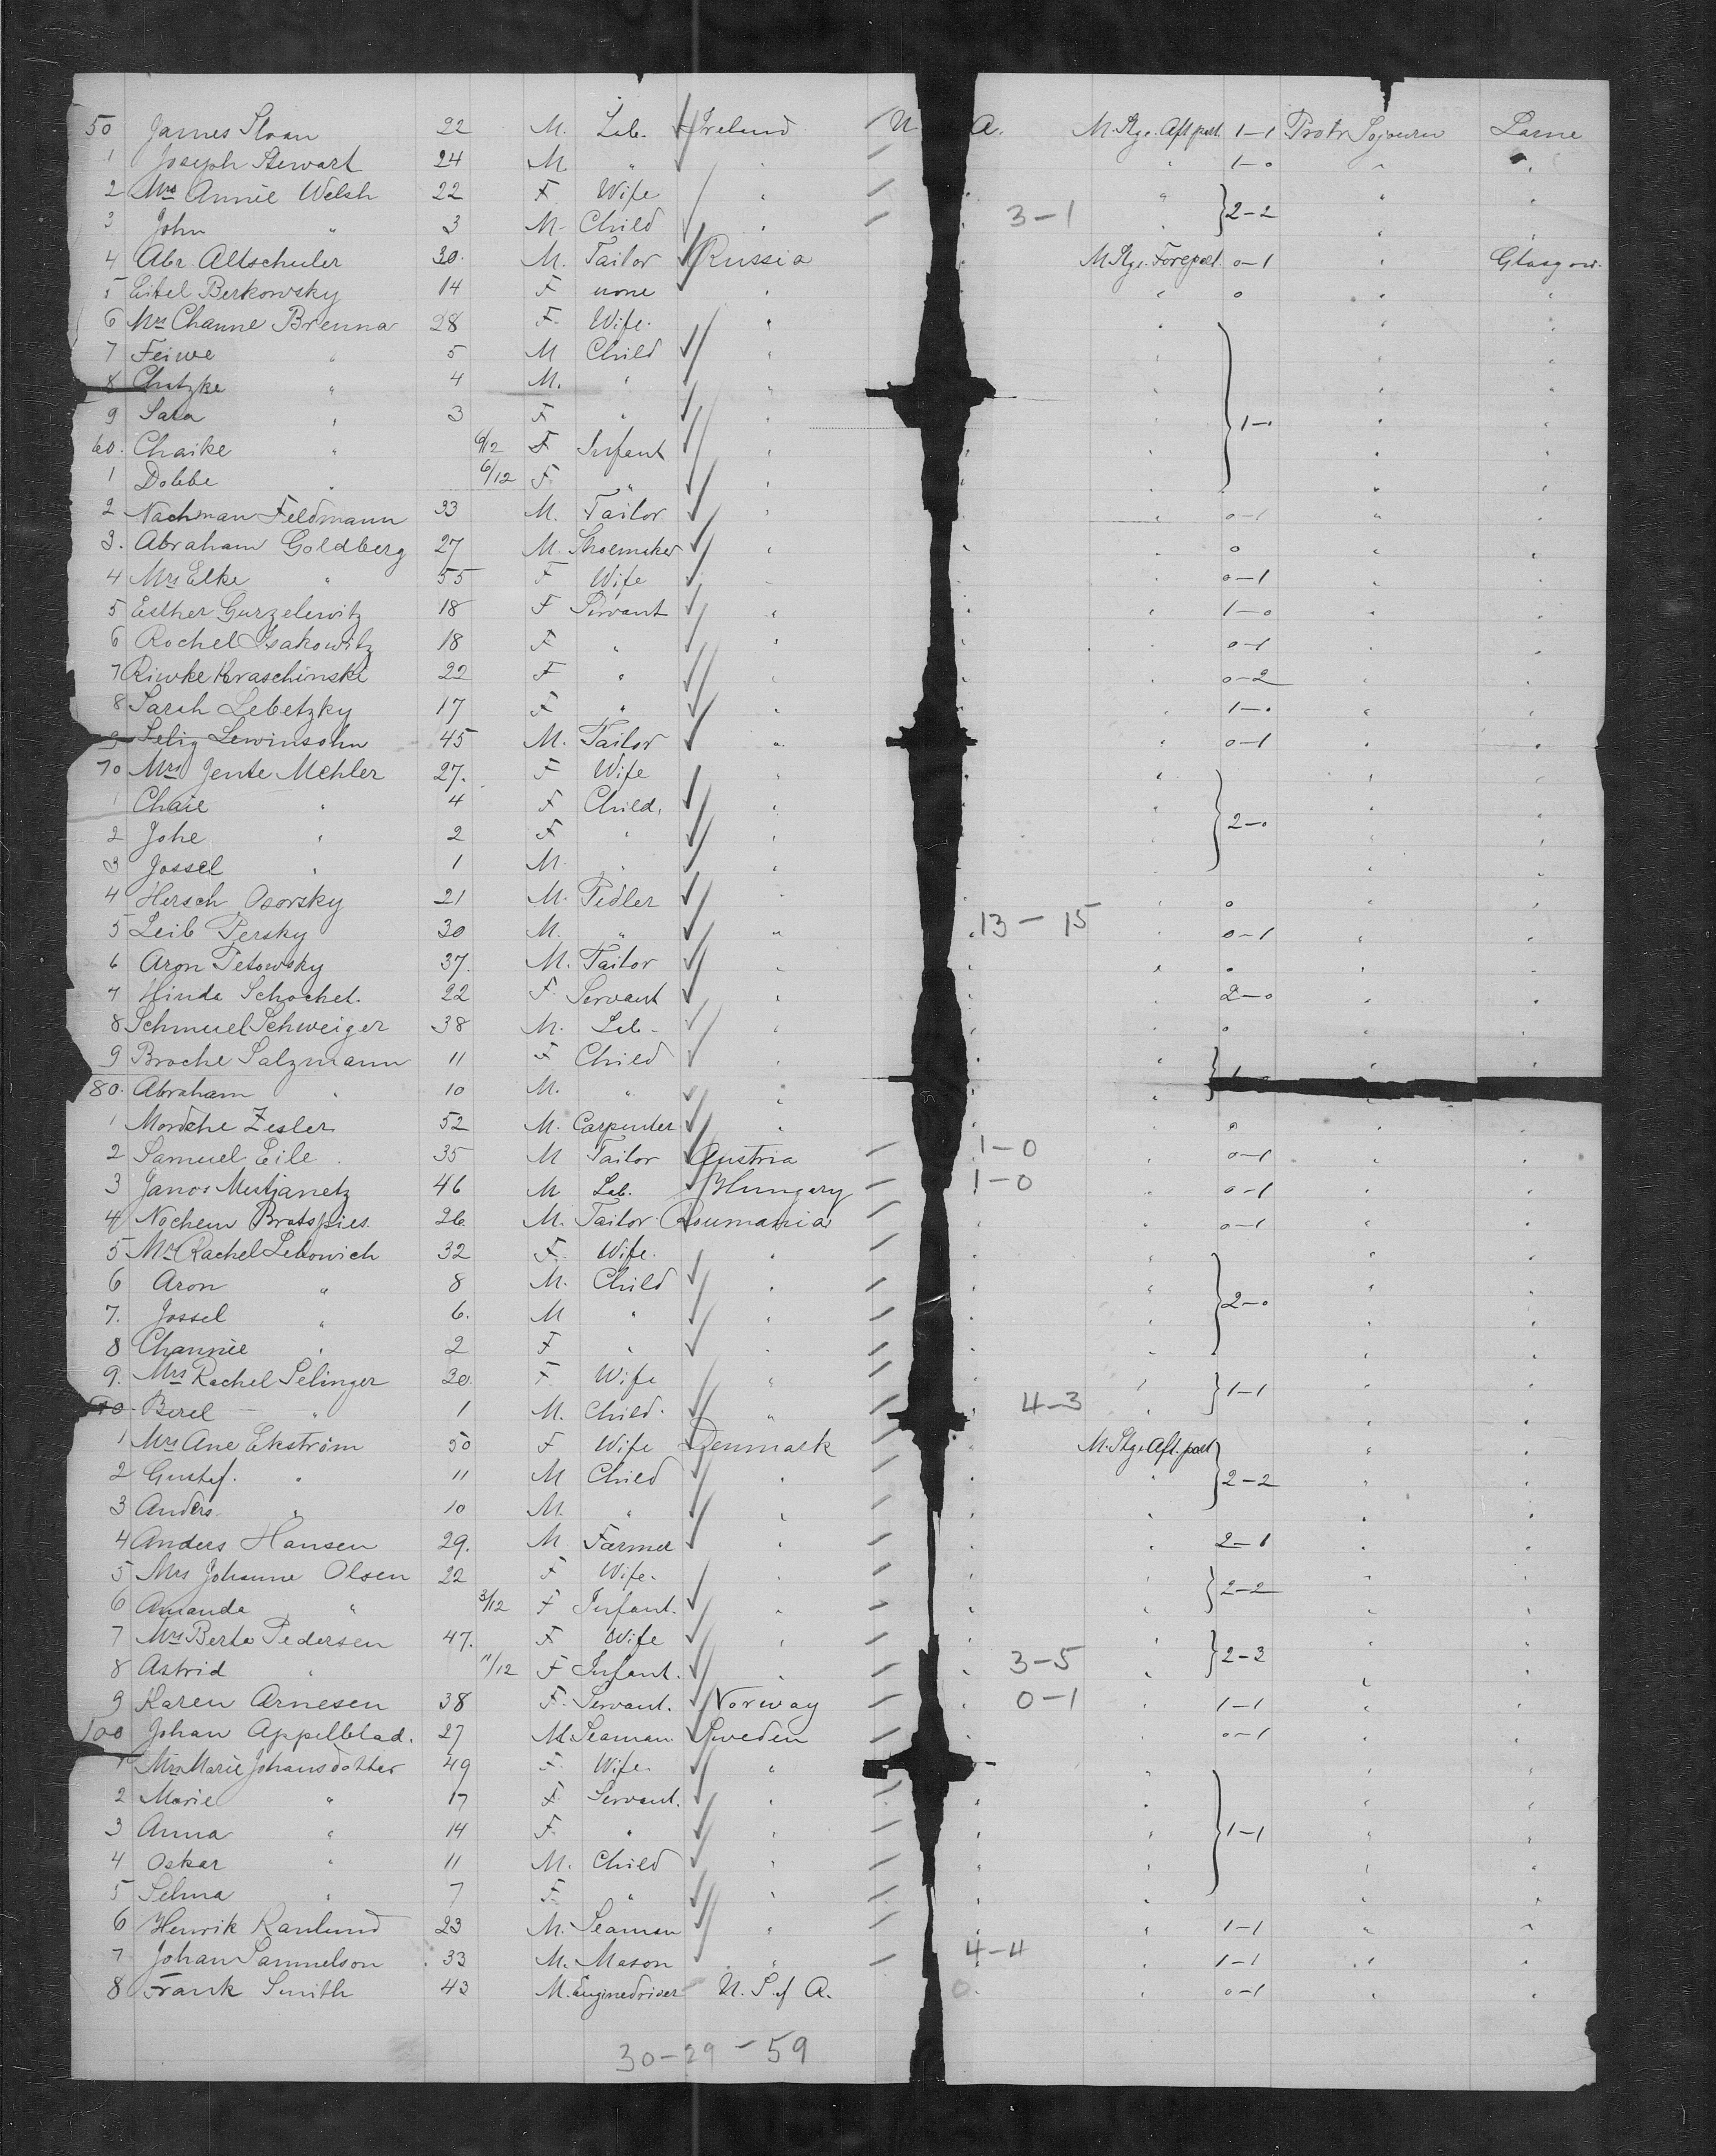 50 James Sloan 22 M. Lab. Ireland U A. M. Stge. Aft part. 1-1 Protr Sojourn Larne
1 Joseph Stewart 24 M " " 1-0 " "
2 Mrs Annie Welsh 22 F Wife " " } 2-2 " "
3 John " 3 M- Child " 3-1 " "
4 Abr. Altschuler 30. M. Tailor Russia M Stge. Forepart. 0-1 " Glasgow.
5 Eitel Berkowsky 14 F none " " 0 " "
6 Mrs Channe Brenna 28 F. Wife. " " " "
7 Feiwe " 5 M Child " " " "
8 Chatzke " 4 M. " " " " "
9 Sara " 3 F " " } 1-0 " "
60. Chaike " 6/12 F Infant " " " "
1 Dobbe " 6/12 F. " " " " "
2 Nachman Feldmann 33 M. Tailor " " 0-1 " "
3. Abraham Goldberg 27 M. Shoemaker " " 0 " "
4 Mrs Elke " 55 F Wife " " 0-1 " "
5 Esther Gurzelewitz 18 F Servant " " 1-0 " "
6 Rochel Isakowitz 18 F " " " 0-1 " "
7 Riwke Kraschinski 22 F " " " 0-2 " "
8 Sarah Lebetzky 17 F " " " 1-0 " "
9 Selig Lewinsohn 45 M. Tailor " " 0-1 " "
70 Mrs Jente Mehler 27. F Wife " " " "
1 Chaie " 4 F Child, " " } 2-0 " "
2 Johe " 2 F " " " " "
3 Jossel " 1 M " " " " "
4 Hersch Osorsky 21 M. Pedler " " 0 " "
5 Leib Persky 30 M. " " 13-15 " 0-1 " "
6 Aron Petowsky 37. M. Tailor " " 0 " "
7 Hinda Schochet. 22 F. Servant " " 2-0 " "
8 Schmuel Schweiger 38 M. Lab- " " 0 " "
9 Broche Salzmann 11 F Child " " } " "
80. Abraham " 10 M. " " " " "
1 Mordche Zesler 52 M. Carpenter " " 0 " "
2 Samuel Eile 35 M Tailor Austria 1-0 " 0-1 " "
3 Janos Mestjanetz 46 M Lab. Hungary 1-0 " 0-1 " "
4 Nochem Bratspies. 26 M. Tailor Roumania " 0-1 " "
5 Mrs Rachel Lebowich 32 F. Wife. " " " "
6 Aron " 8 M. Child " " } 2-0 " "
7. Jossel " 6. M " " " " "
8 Channie " 2 F " " " " "
9. Mrs Rachel Selinger 30. F Wife " " } 1-1 " "
90 Berel " 1 M. Child. " 4-3 " " "
1 Mrs Ane Ekström 50 F Wife Denmark M. Stge Aft. part " "
2 Gustaf. " 11 M Child " " } 2-2 " "
3 Anders. " 10 M. " " " " "
4 Anders Hansen 29. M Farmer " " 2-1 " "
5 Mrs Johanne Olsen 22 F Wife. " " } 2-2 " "
6 Amanda " 3/12 F Infant. " " " "
7 Mrs Berte Pedersen 47. F Wife " " } 2-3 " "
8 Astrid " 11/12 F Infant. " 3-5 " " "
9 Karen Arnesen 38 F. Servant. Norway 0-1 " 1-1 " "
100 Johan Appelblad. 27 M. Seaman Sweden " 0-1 " "
1 Mrs Marie Johansdotter 49 F. Wife. " " " "
2 Marie " 17 F. Servant. " " " "
3 Anna " 14 F. " " " } 1-1 " "
4 Oskar " 11 M. Child " " " "
5 Selma " 7 F. " " " " "
6 Henrik Ranlund 23 M. Seaman " " 1-1 " "
7 Johan Samuelson 33 M. Mason " 4-4 " 1-1 " "
8 Frank Smith 43 M. Enginedriver U. S. of A. 0. " 0-1 " "
30-29-59